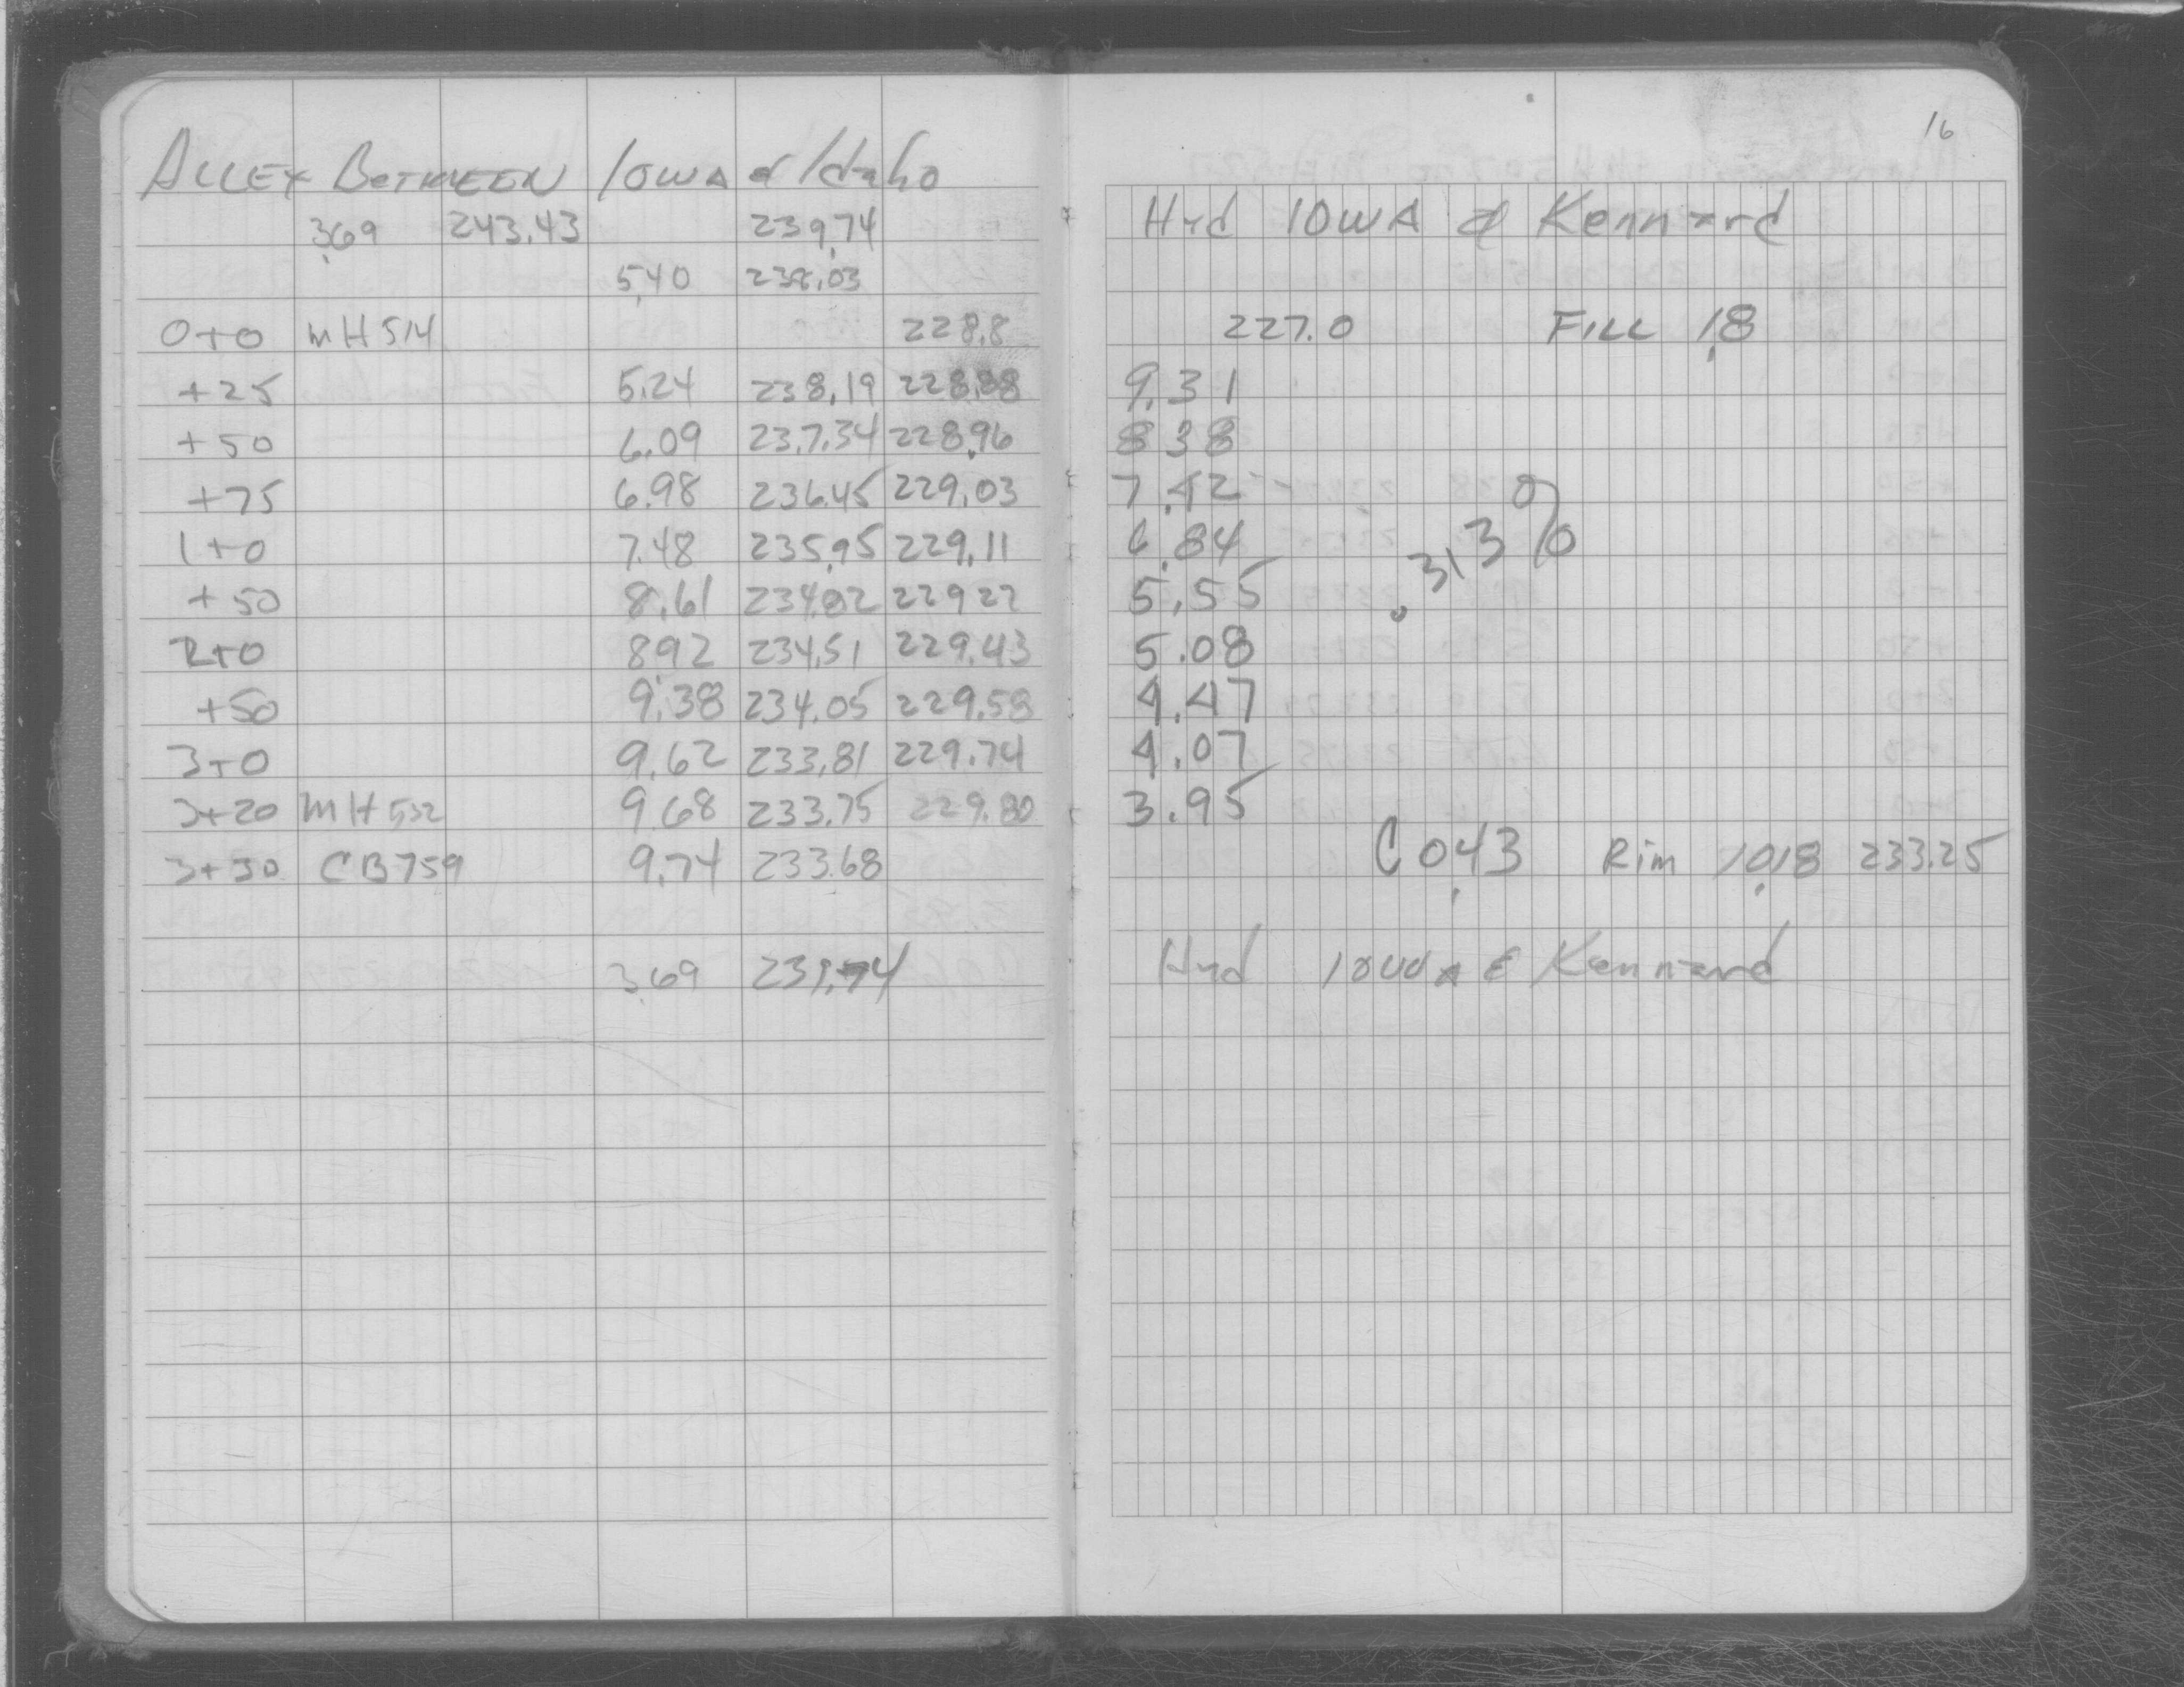 16
ALLEY BETWEEN IOWA & Idaho
3.69 243.43 239.74 Hyd IOWA & Kennard
5.40 238.03
0+0 MH 514 228.8 227.0 FILL 1.8
+25 5.24 238.19 228.88 9.31
+50 6.09 237.34 228.96 8 38
+75 6.98 236.45 229.03 7.42
1+0 7.48 235.95 229.11 6.84
.313%
+50 8.61 234.82 229 27 5.55
2+0 8.92 234.51 229.43 5.08
+50 9.38 234.05 229.58 4.47
3+0 9.62 233.81 229.74 4.07
3+20 MH 532 9.68 233.75 229.80 3.95
3+30 CB 759 9.74 233.68 C 0.43 Rim 10.18 233.25
3.69 239.74 Hyd IOWA & Kennard